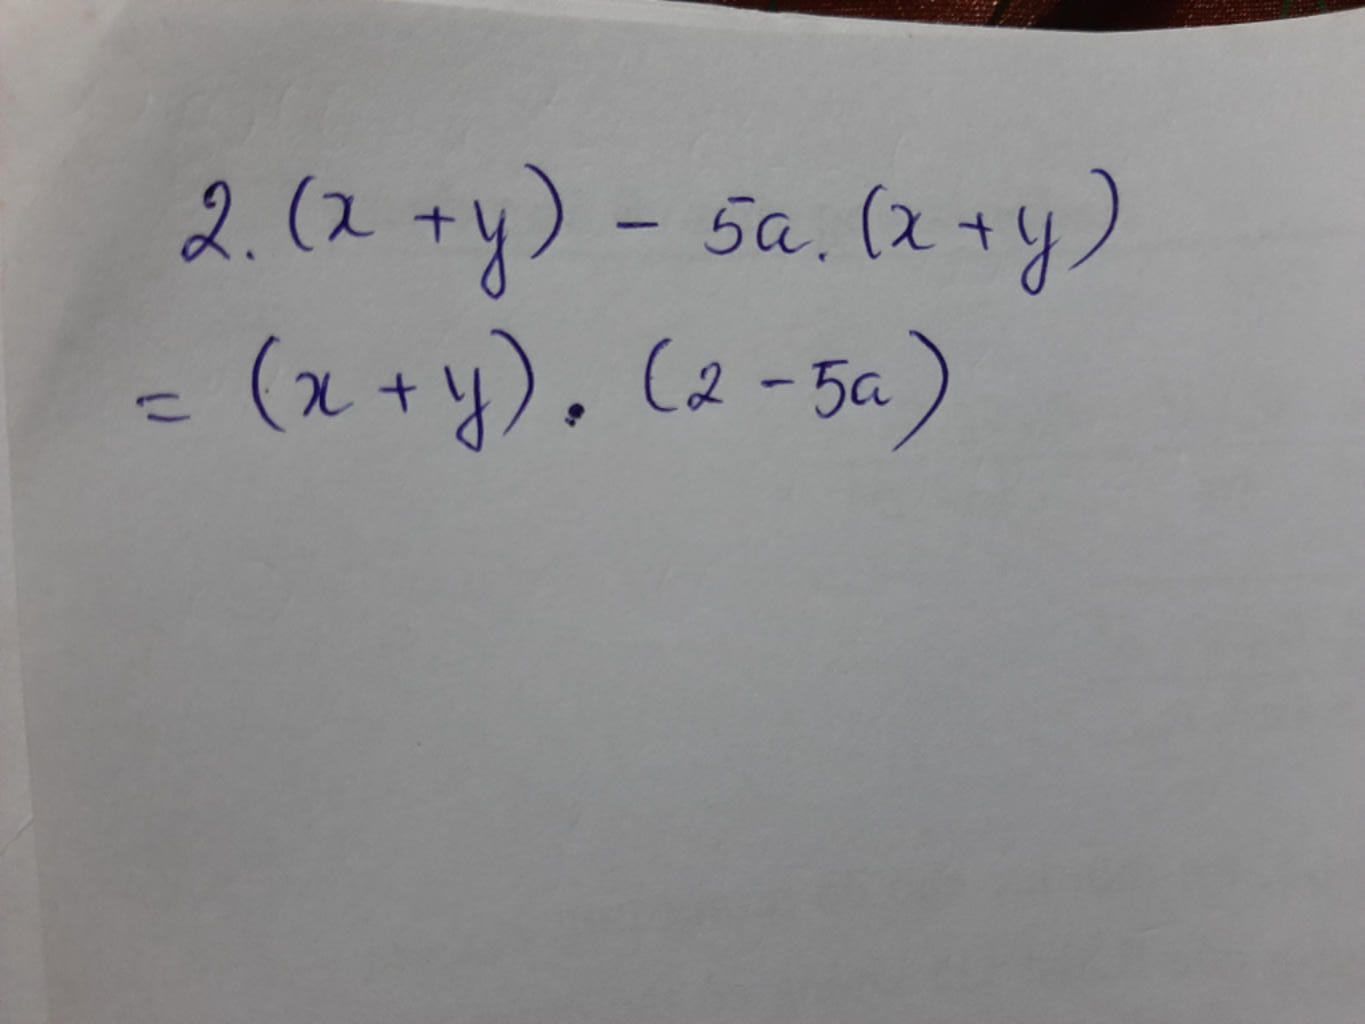 2. (x + y) - 5a. (x + y)
= (x + y) . (2 - 5a)